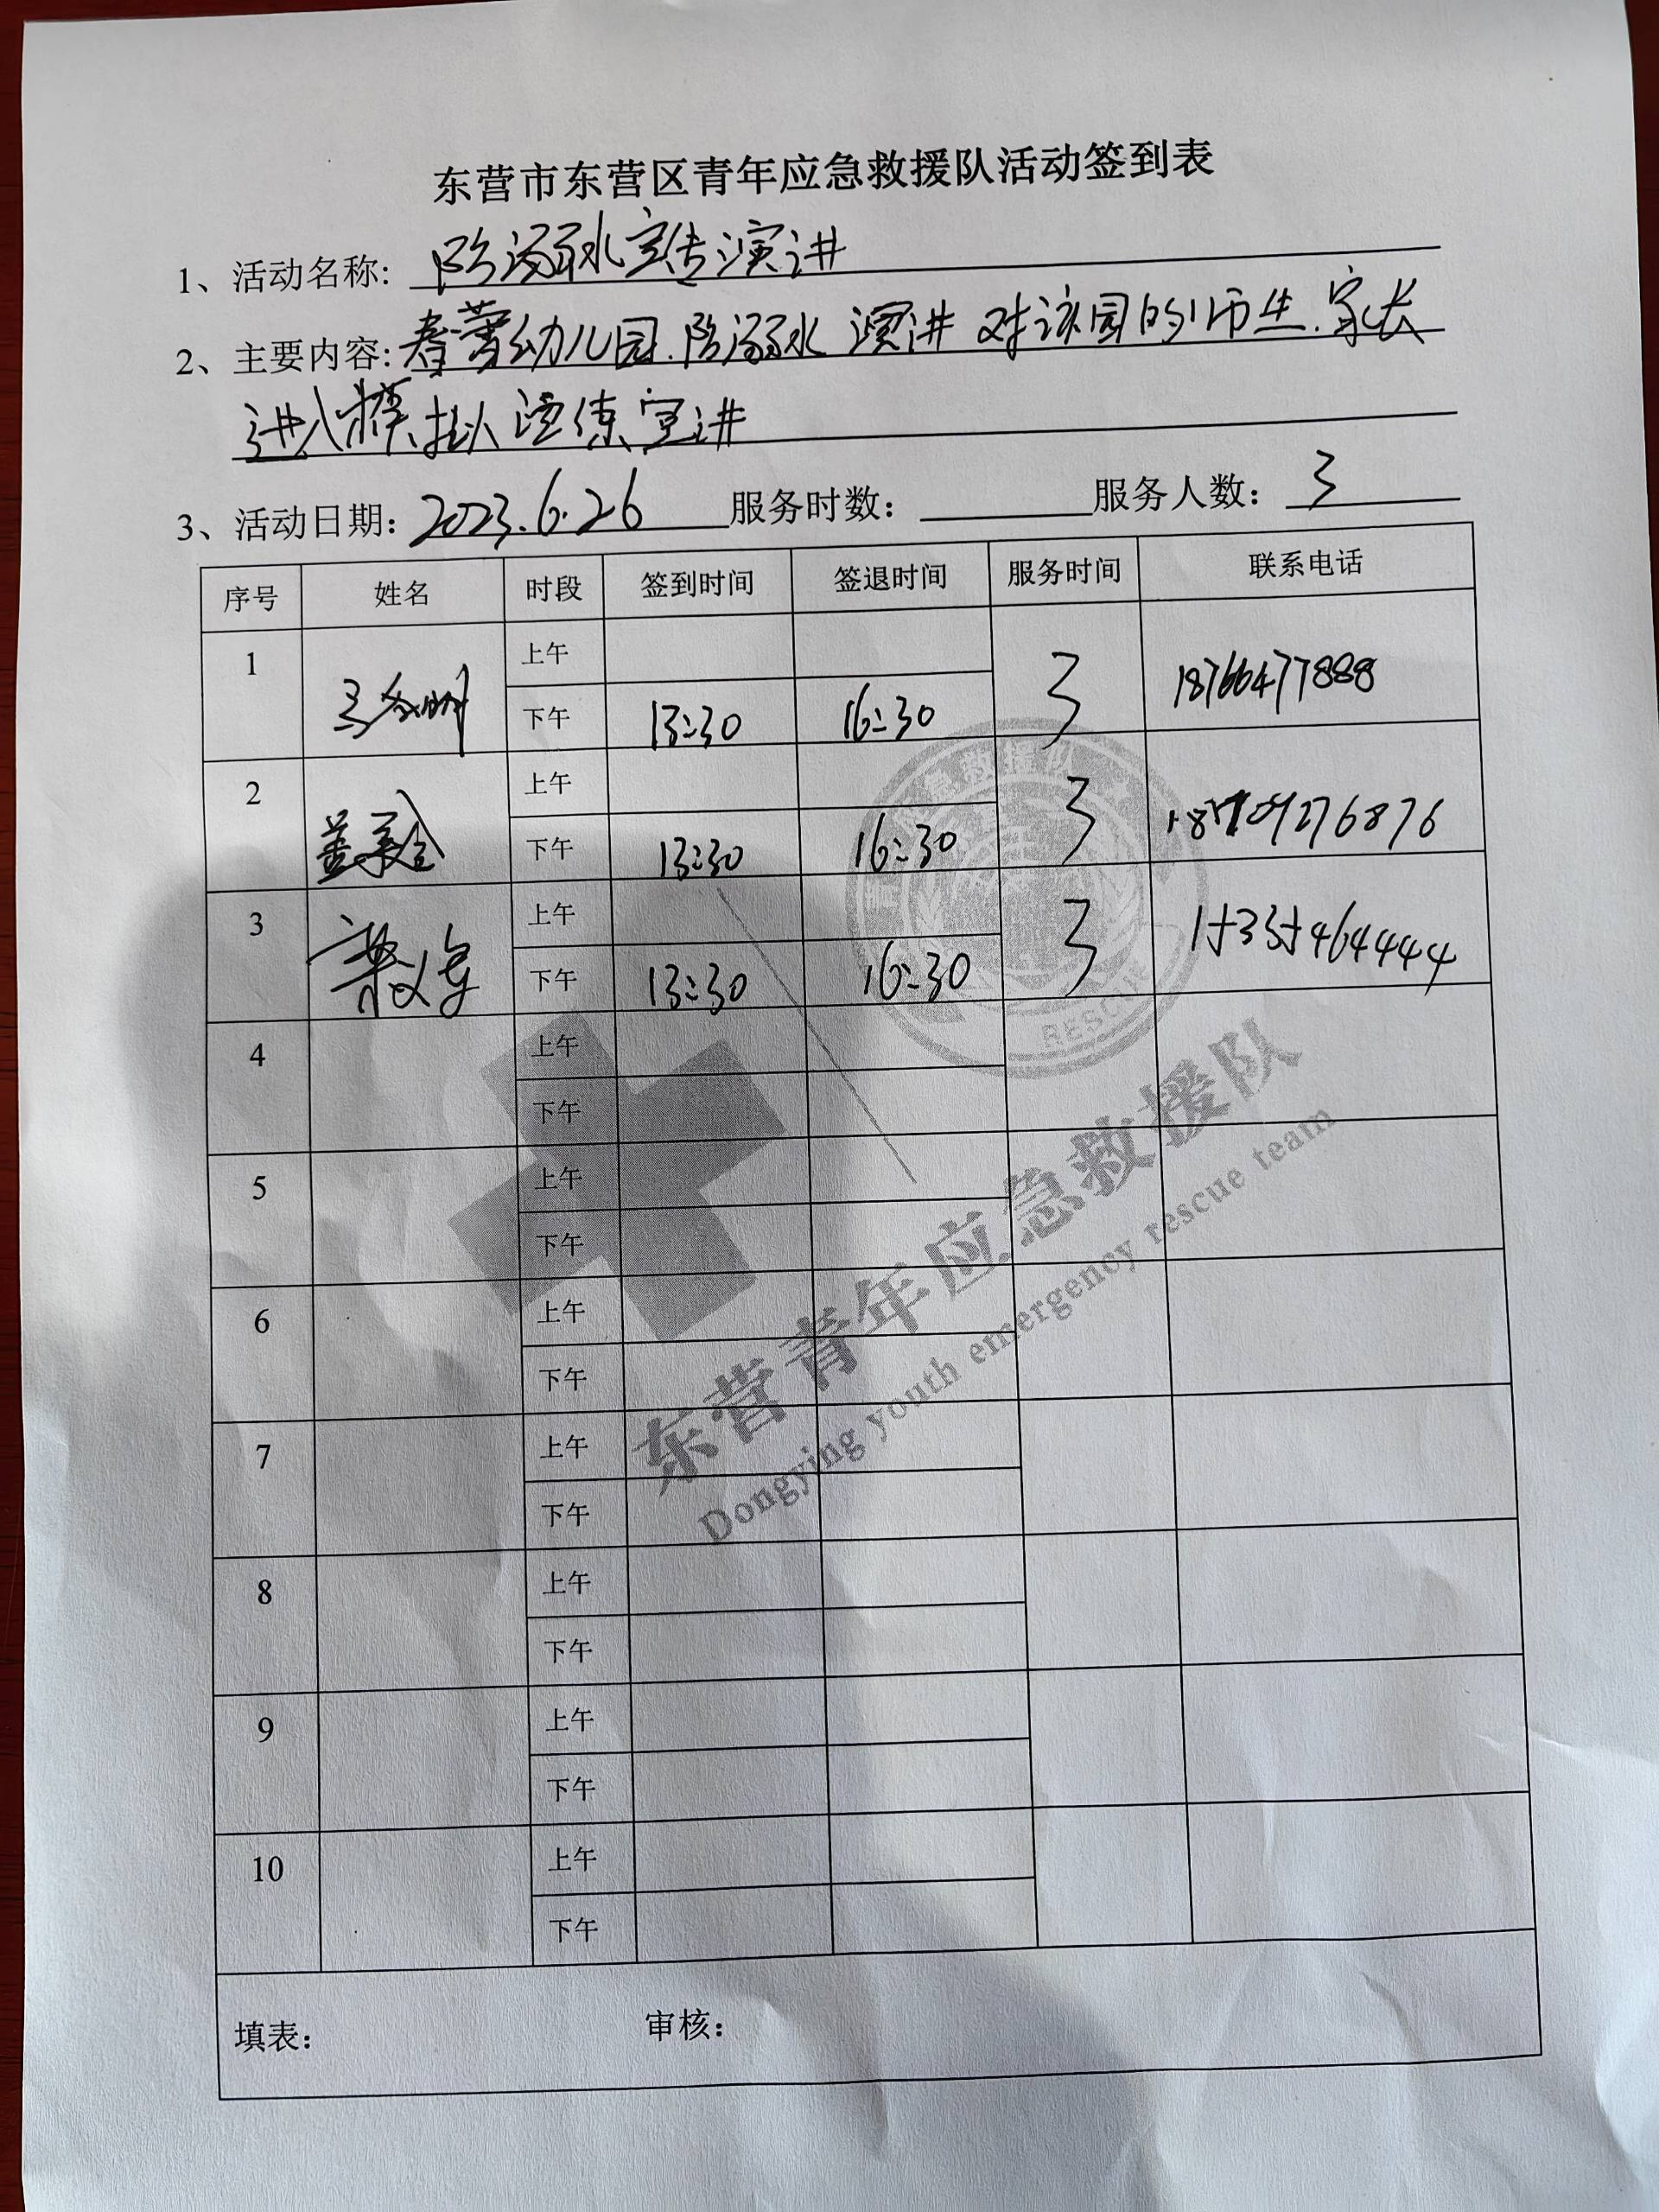 东营市东营区青年应急救援队活动签到表
1、活动名称: 防溺水宣传演讲
2、主要内容: 春蕾幼儿园.防溺水 演讲 对该园的师生.家长
进入模拟演练宣讲
3、活动日期: 2023.6.26 服务时数: 服务人数: 3
序号 姓名 时段 签到时间 签退时间 服务时间 联系电话
1 上午
下午 13:30 16:30 3 18766477888
2 上午
下午 13:30 16:30 3
3 上午
下午 13:30 16:30 3 15335464444
4 上午
下午
5 上午
下午
6 上午
下午
7 上午
下午
8 上午
下午
9 上午
下午
10 上午
下午
填表: 审核:
东营青年应急救援队
Dongying youth emergency rescue team
RESCUE